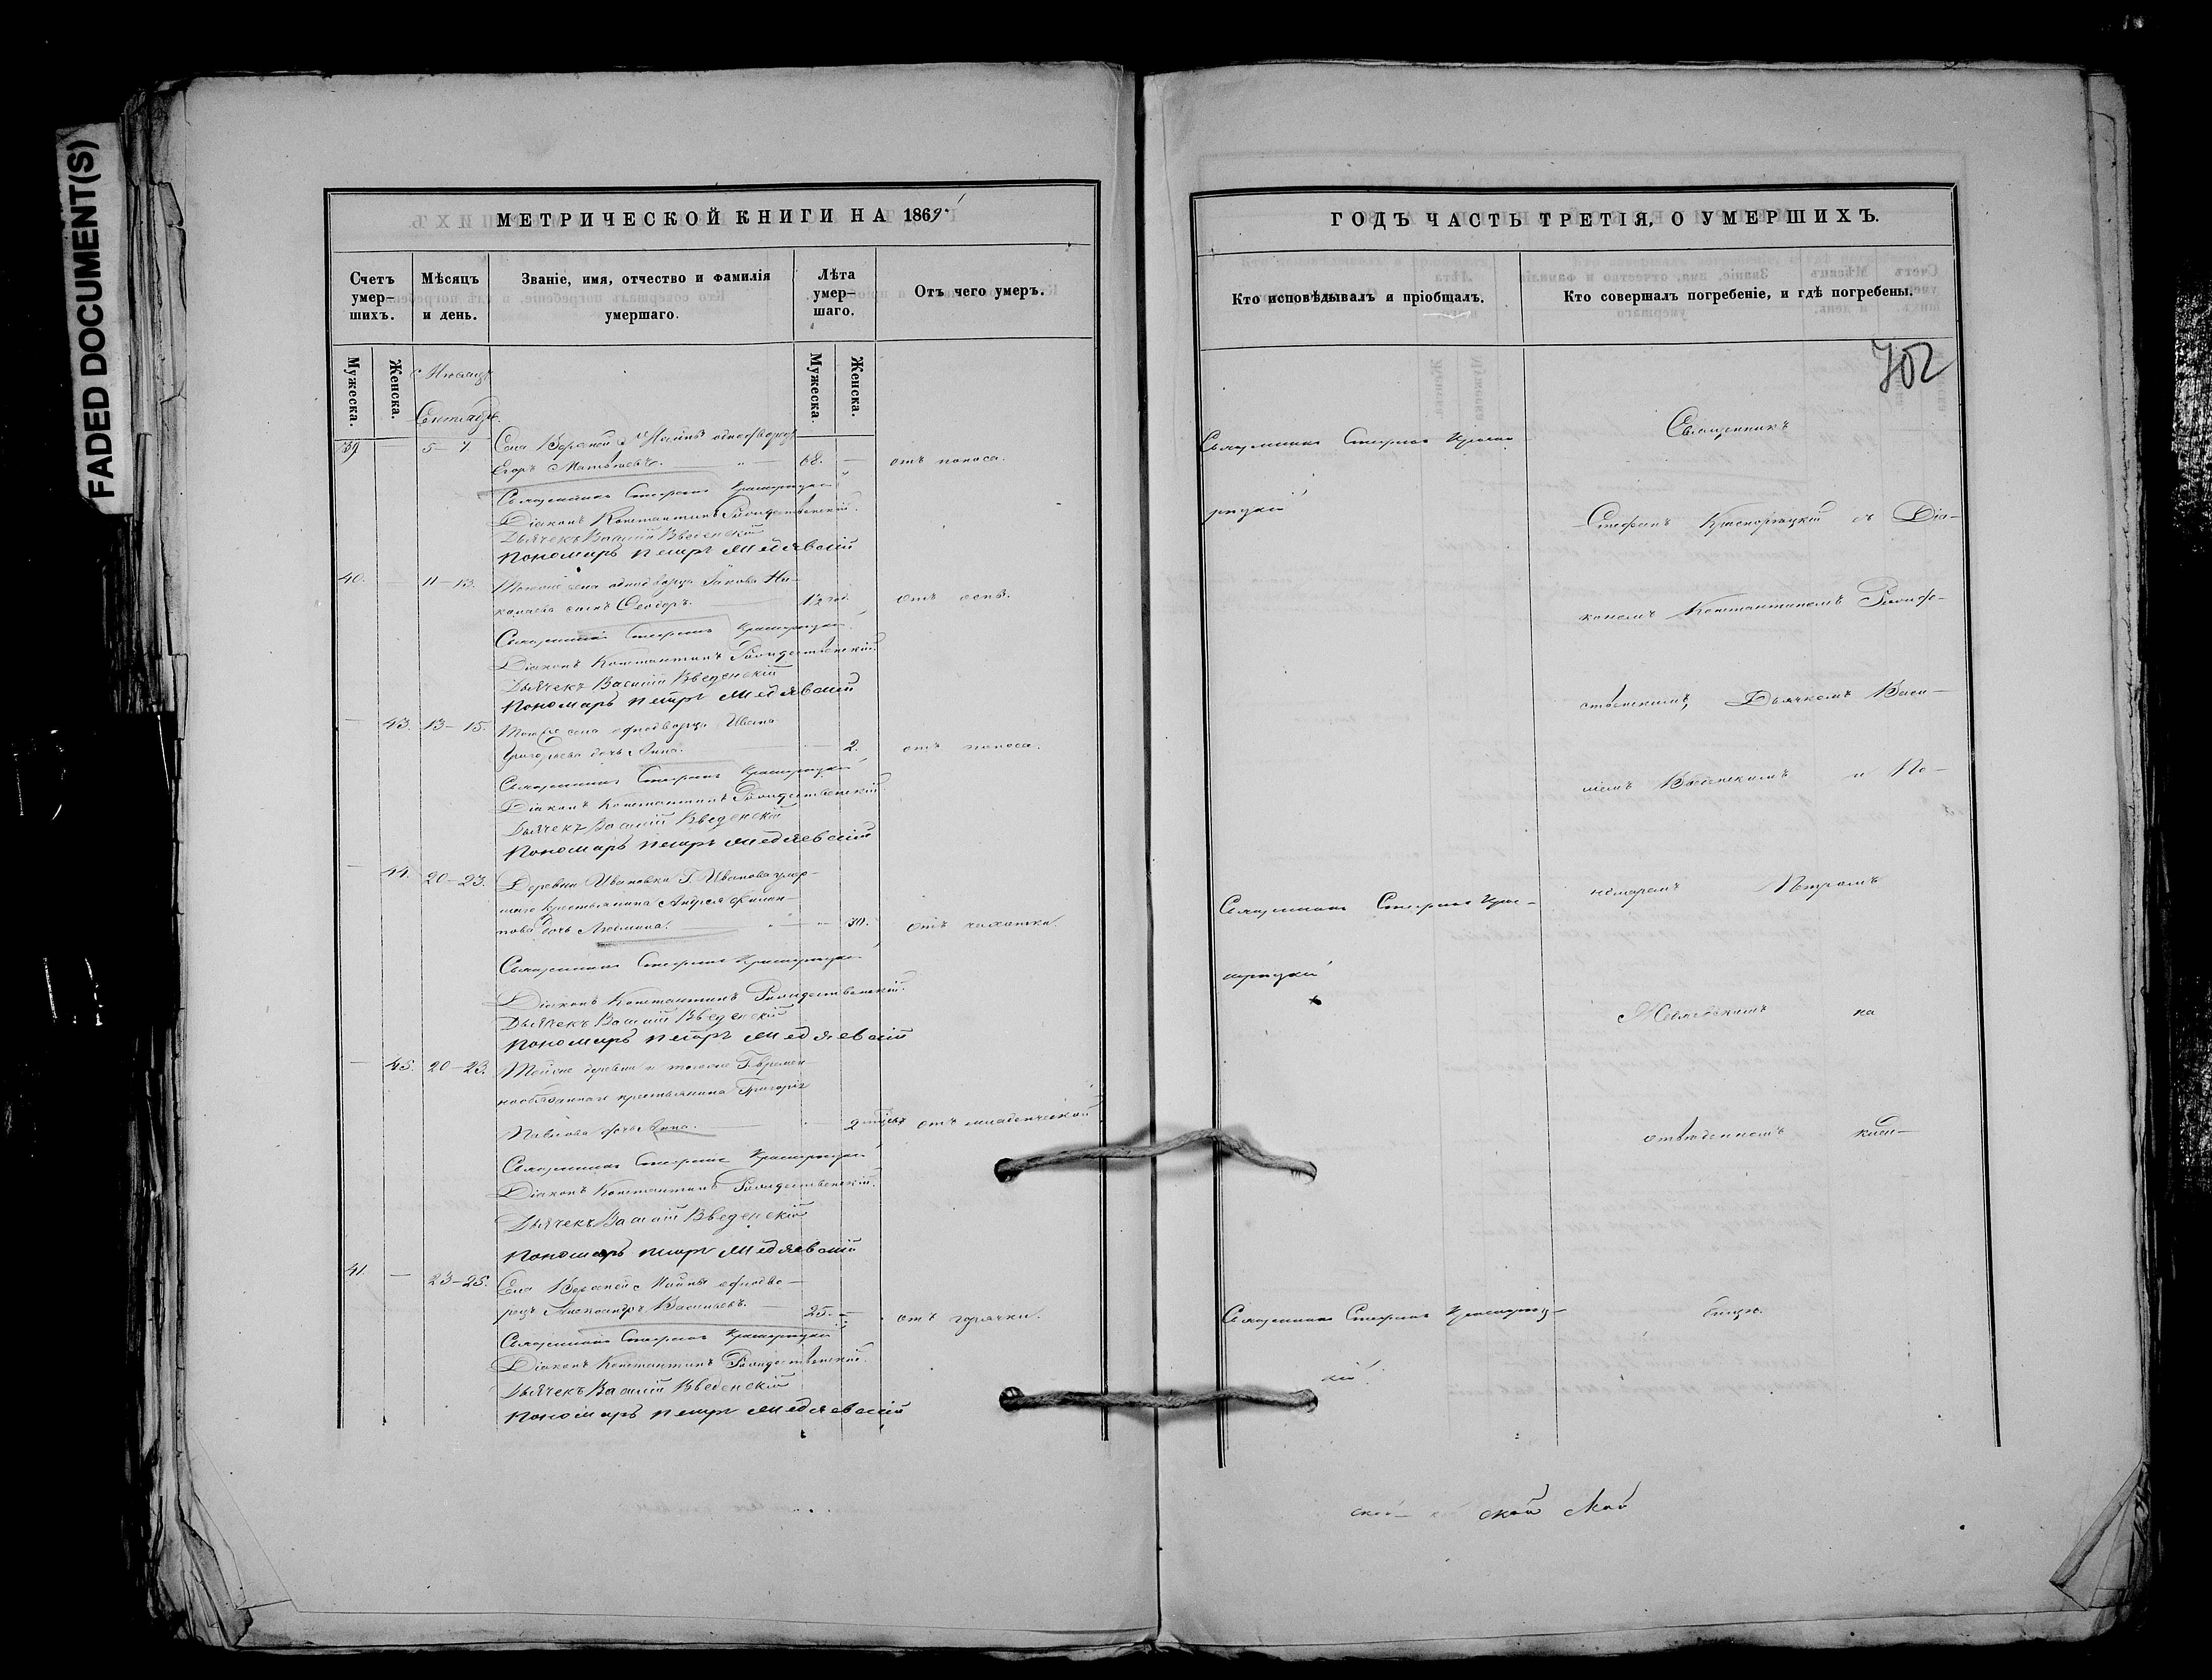 FADED DOCUMENT(S)
МЕТРИЧЕСКОЙ КНИГИ НА 1869
Счетъ умер-шихъ.
Мѣсяцъ и день.
Званіе, имя, отчество и фамилія умершаго.
Лѣта умер-шаго.
Отъ чего умеръ.
Мужеска.
Женска.
Мужеска.
Женска.
Сентябрь
39 — 5–7. Села Верхней Маины однодворецъ
Егоръ Матвѣевъ. — 68. — отъ поноса.
Священникъ Стефанъ
Діаконъ Константинъ Рождественскій.
Дьячекъ Василій Введенскій
Пономарь Петръ Медяевскій
40. — 11–13. Тогоже села однодворца Іакова Ни-
сынъ Ѳеодоръ. — 1/2 год. отъ оспы.
Священникъ Стефанъ
Діаконъ Константинъ Рождественскій
Дьячекъ Василій Введенскій
Пономарь Петръ Медяевскій
— 43. 13–15. Тогоже села однодворца Ивана
Григорьева дочь Анна. — 2. отъ поноса.
Священникъ Стефанъ
Діаконъ Константинъ Рождественскій
Дьячекъ Василій Введенскій
Пономарь Петръ Медяевскій
— 44. 20–23. Деревни Ивановки Г. Иванова умер-
шаго крестьянина Андрея Филип-
пова дочь — 30. отъ чахотки.
Священникъ Стефанъ
Діаконъ Константинъ Рождественскій.
Дьячекъ Василій Введенскій
Пономарь Петръ Медяевскій
— 45. 20–23. Тойже деревни и тогоже Г. времен-
нообязаннаго крестьянина Григорія
Павлова дочь Анна. — 2 отъ младенческой
Священникъ Стефанъ
Діаконъ Константинъ Рождественскій.
Дьячекъ Василій Введенскій
Пономарь Петръ Медяевскій
41. — 23–25. Села Верхней Маины однодво-
рецъ Александръ Васильевъ. — 25. — отъ горячки.
Священникъ Стефанъ
Діаконъ Константинъ Рождественскій.
Дьячекъ Василій Введенскій
Пономарь Петръ Медяевскій
ГОДЪ ЧАСТЬ ТРЕТІЯ, О УМЕРШИХЪ.
Кто исповѣдывалъ и пріобщалъ.
Кто совершалъ погребеніе, и гдѣ погребены.
702
Священникъ Стефанъ
Священникъ Стефанъ
Священникъ Стефанъ
кій.
Священникъ
Стефанъ съ Діа-
кономъ Константиномъ Рожде-
ственскимъ, Дьячкомъ Васи-
ліемъ Введенскимъ и По-
номаремъ Петромъ
Медяевскимъ на
отведенномъ клад-
бищѣ.
ской